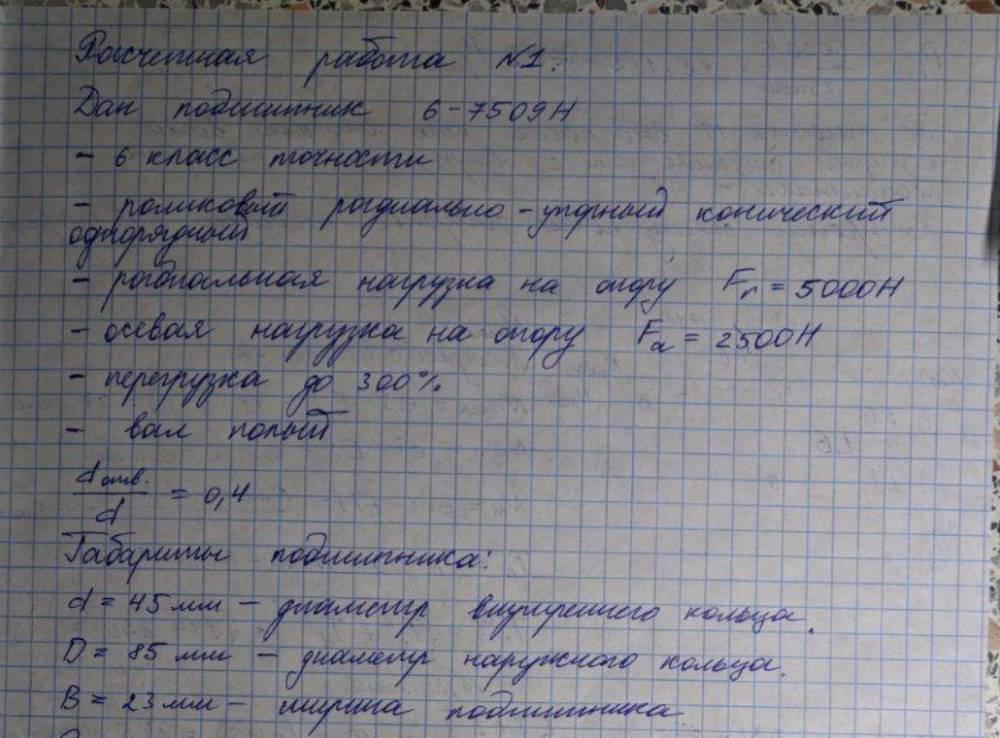 Расчетная работа №1.
Дан подшипник 6-7509Н
- 6 класс точности
- роликовый радиально-упорный конический
однорядный
- радиальная нагрузка на опору Fr = 5000Н
- осевая нагрузка на опору Fa = 2500Н
- перегрузка до 300%
- вал полый
dотв./d = 0,4
Габариты подшипника:
d = 45 мм - диаметр внутреннего кольца.
D = 85 мм - диаметр наружного кольца.
B = 23 мм - ширина подшипника